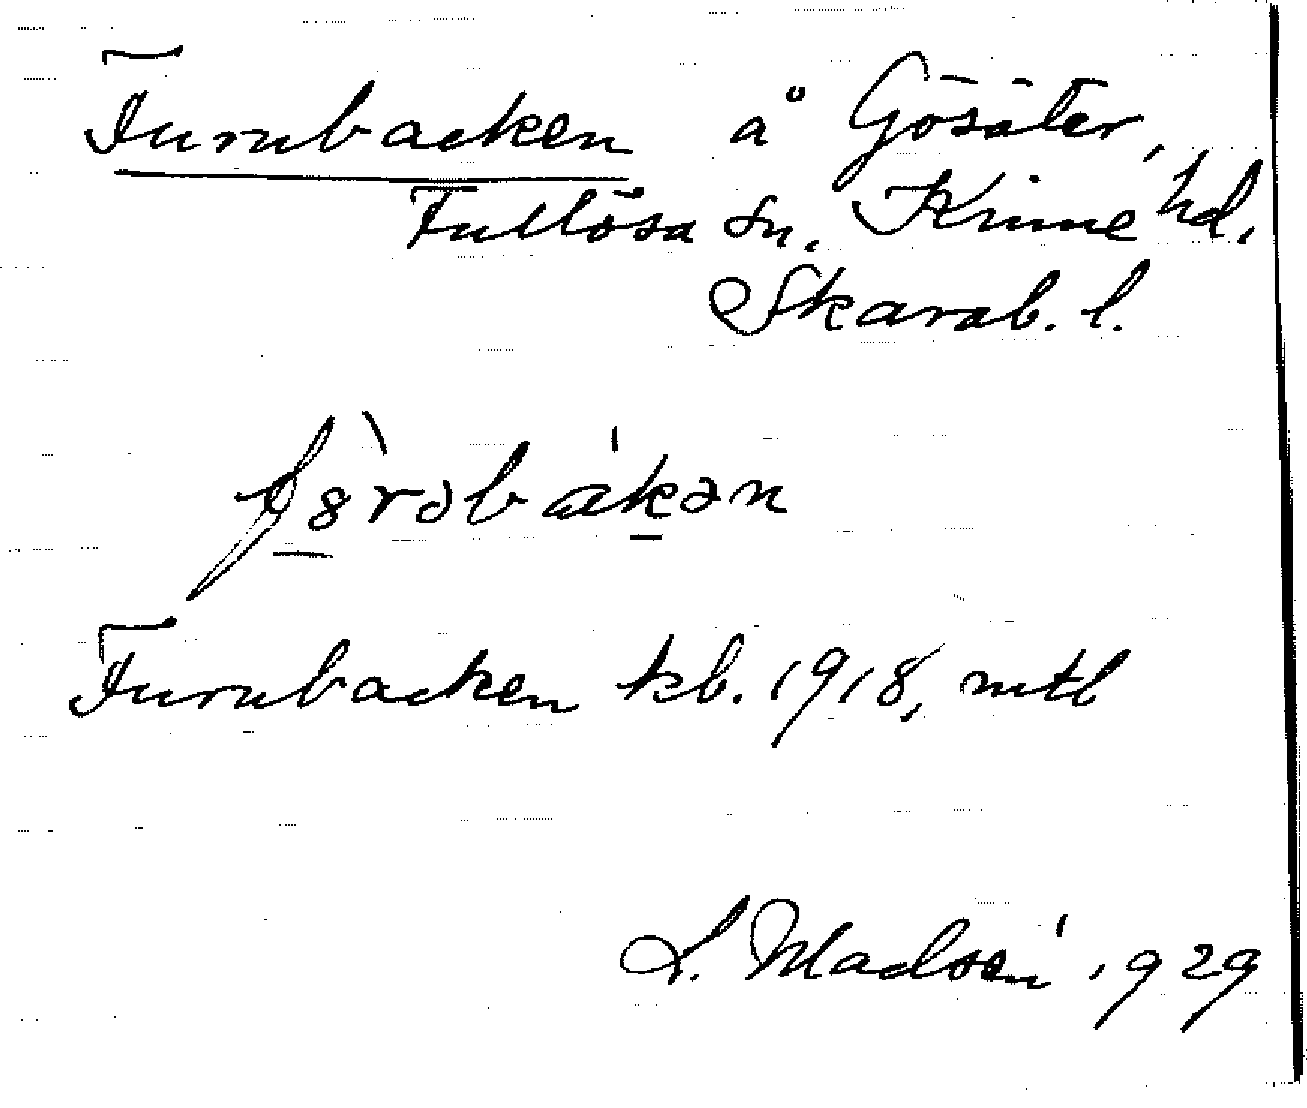 Furubacken å Gösäter,
Fullösa sn. Kinne hd.
Skarab. l.
Furubacken kb. 1918, mtl
L. Madsén 1929